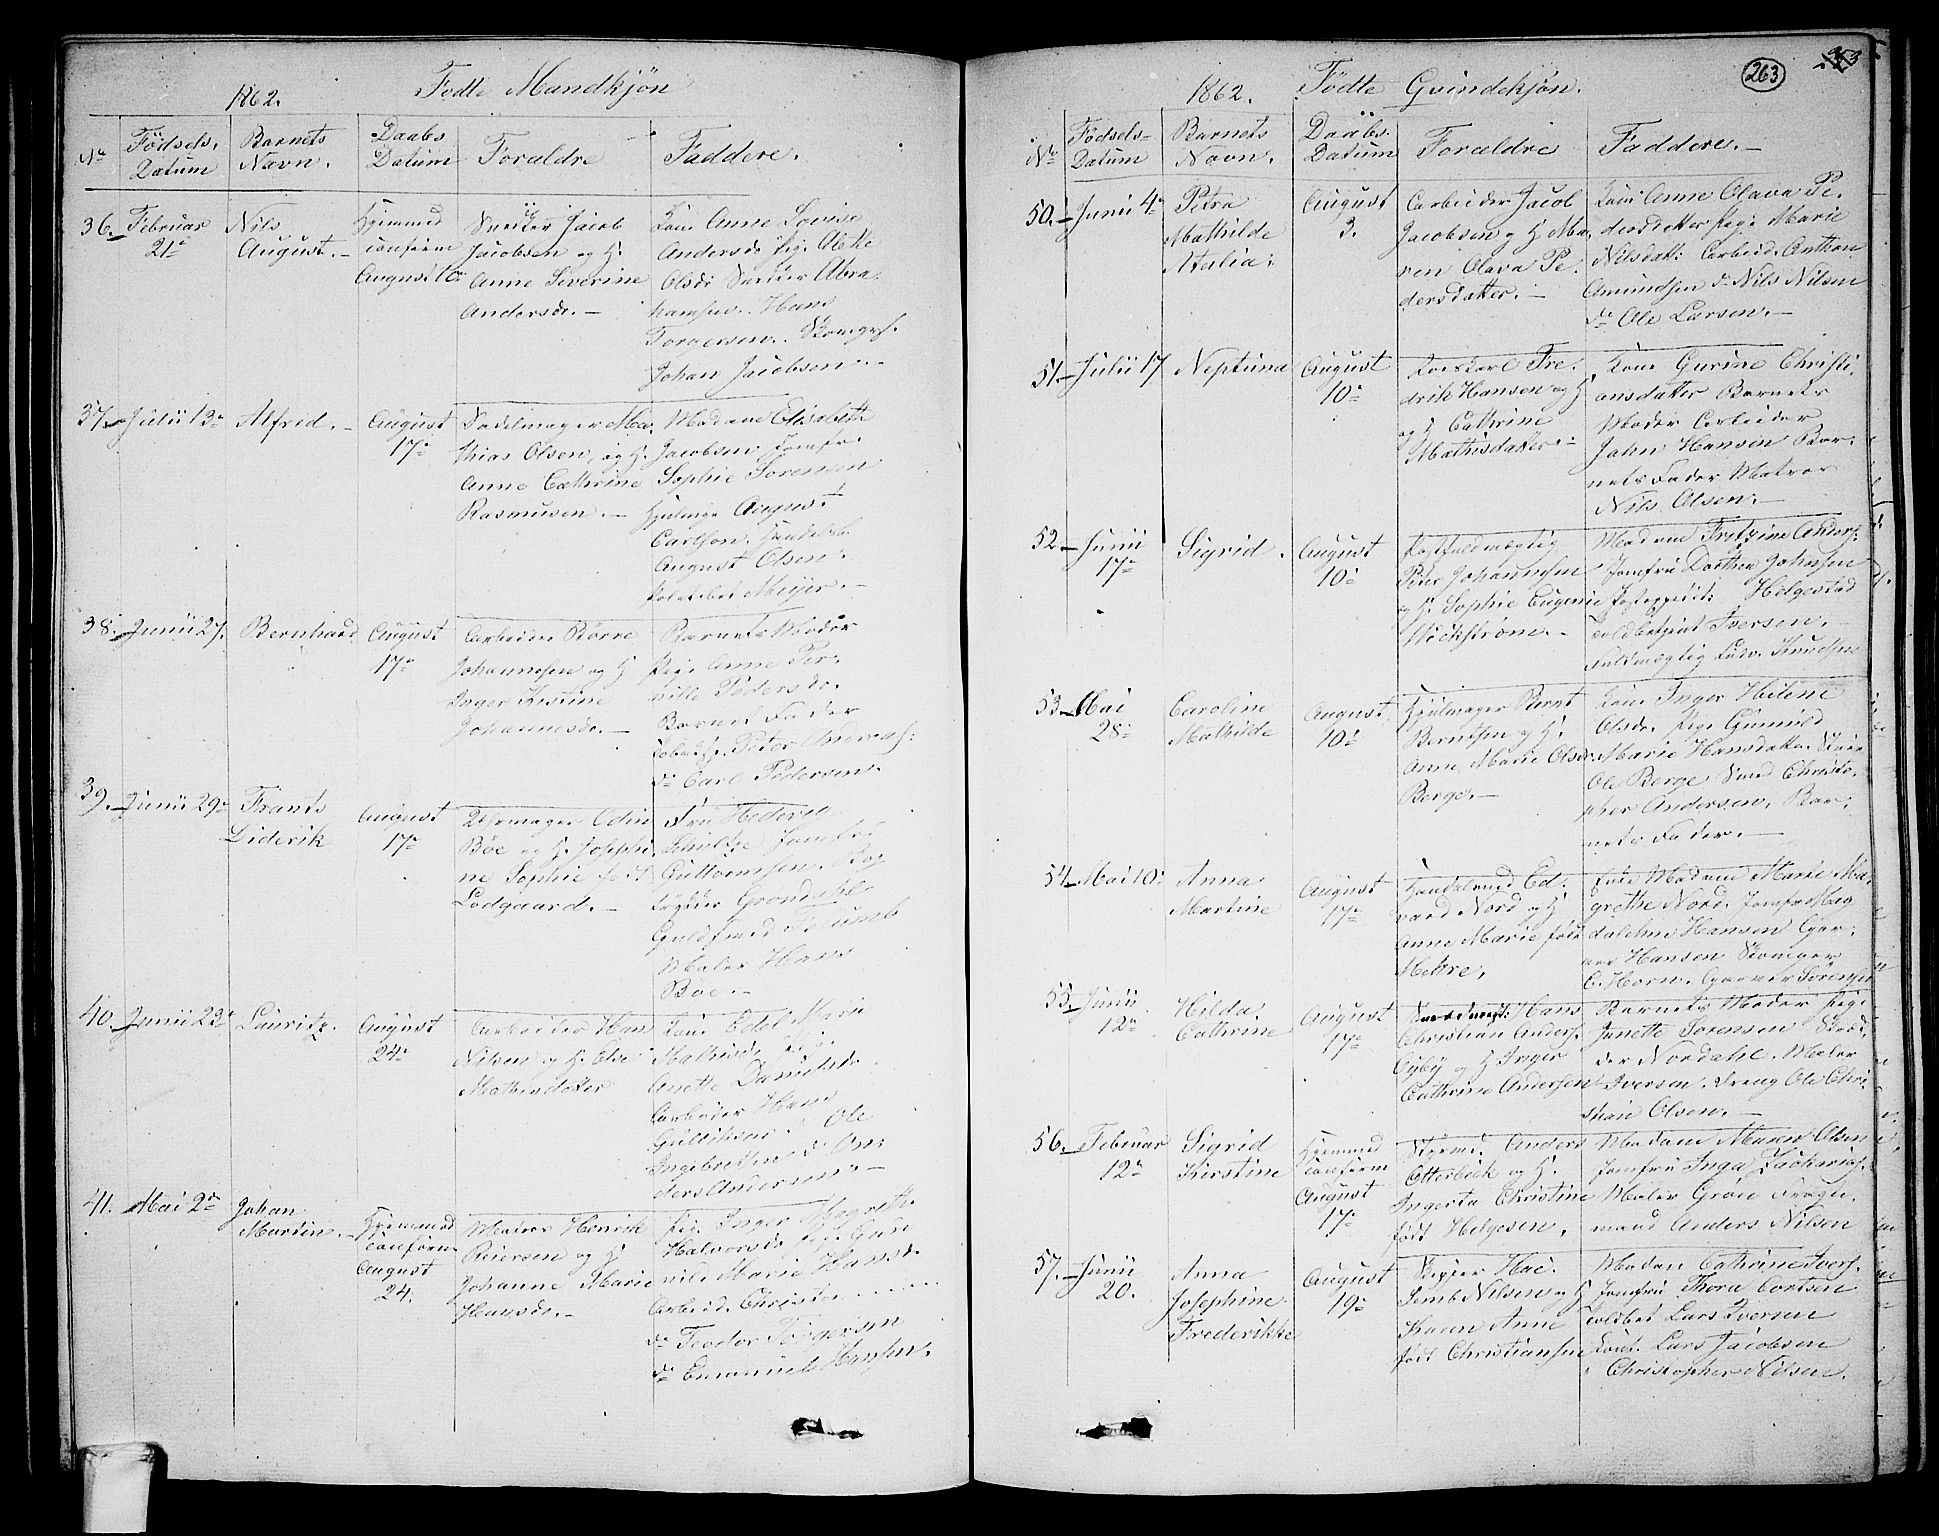 1862. Fødte Mandkjøn
No Fødsels Datum Barnets Navn. Daabs Datum Forældre Faddere.
36. Februar 21de
Nils August.
Hjemmed confirm August 10
Snedker Jacob
Jacobsen og H.
Anne Severine
Andersd.
Kone Anne Lovise
Andersd. Pige
Olsd. Snedker Abra
hamsen. Hans
Torgersen.
Johan Jacobsen
37. Julii 13de
Alfred.
August 17de
Sadelmager Ma
thias Olsen, og H.
Anne Cathrine
Rasmusen.
Madame Elisabeth
Jacobsen Jomfr.
Sophie Sørensen
Hjulmgr August
Carlson.
August Olsen.
Meyer.
38. Junii 27.
Bernhard
August 17de
Arbeider Børre
Johannesen og H
Inger Kirstine
Johannesd.
Barnets Moder
Pige Anne Per
nille Pedersd.
Barnets Fader
Peter Andreas
do Carl Pedersen.
39. Junii 29de
Frants Diderik
August 17de
Uhrmager Odin
Bøe og H. Josephi
ne Sophie født
Lodgaard.
Fru Hedevig
Schultze Jomfru
Guttormsen. Bog
trykker Grøndahl
Guldsmed
Maler Hans
Bøe.
40. Junii 23de
Lauritz.
August 24de
Arbeider Han
Nilsen og H. Else
Mathisdatter
Kone Edel Marie
Mathisd. Pige
Anette Danielsd.
Arbeider Hans
Gulliksen do Ole
Ingebretsen do An
ders Andersen
41. Mai 2de
Johan Martin.
Hjemmed confirm August 24.
Matros Henrik
Reiersen og H
Johanne Marie
Hansd.
Pige Inger Magrethe
Halvorsd. Pige Gun
nild Marie Hansd.
Arbeid. Christen
do Teodor Torgersen
do Emanuel Hansen.
263
1862. Fødte Qvindekjøn.
No Fødsels Datum Barnets Navn. Daabs Datum Forældre Faddere.
50. Junii 4de
Petra Mathilde Atalia.
August 3.
Arbeider Jacob
Jacobsen og H Ma
ren Olava Pe
dersdatter.
Kone Anne Olava Pe
dersdatter Pige Marie
Nilsdatt: Arbeid. Anthon
Amundsen do Nils Nilsen
do Ole Larsen.
51. Julii 17
Neptuna
August 10de
Fre
drik Hansen og H
og H Cathrine
Mathisdatter.
Kone Gurine Christi
ansdatter Barnets
Moder Arbeider
John Hansen Bar
nets Fader Matros
Nils Olsen.
52. Junii 17de
Sigrid.
August 10de
Postfuldmægtig
Peter Johannesen
og H. Sophie Eugenie
Stockstrøm.
Madame Frytzine Anders.
Jomfru Dorthea Johnsen
Postexpedit: Helgestad
Toldbetjent Iversen.
Fuldmægtig Ludv. Knudsen
53. Mai 28de
Caroline Mathilde
August 10de
Hjulmager Bernt
Berntsen og H.
Anne Marie Olsd.
Berge.
Kone Inger Helene
Olsd. Pige Gunnild
Marie Hansdatter.
Ole Berge Smed Christo
pher Andersen. Bar
nets Fader.
54. Mai 10de
Anna Martine
August 17de
Handelsmd Ed
vard Nord og H
Anne Marie født
Melkre.
Enke Madame Marie Ma
grethe Nord. Jomfru Mag
dalene Hansen Gar
ver Hansen Skomager
C. Horn. Garver Sørensen
55. Junii 12de
Hilda Cathrine
August 17de
Hans
Christian Anders.
Oyby og H Inger
Cathrine Andersen
Barnets Moder Pige
Janette Sørensen
Nordahl. Maler
Iversen. Dreng Ole Chri
stian Olsen.
56. Februar 12de
Sigrid Kirstine
Hjemmed confirm August 17de
Styrmd. Anders
Otterbeck og H.
Ingerta Christine
født Helgesen.
Madame Maren Olsen
Jomfru Inga Zackarias.
Maler Grøn
mand Anders Nilsen
57. Junii 20.
Anna Josephine Frederikke
August 19de
Skipper Hac.
Semb Nilsen og H
Karen Anne
født Christiansen
Madam Cathrine Ivers.
Jomfru Thora Cortsen
Toldbet Lars Iversen
Lars Jacobsen
Christopher Nilsen.